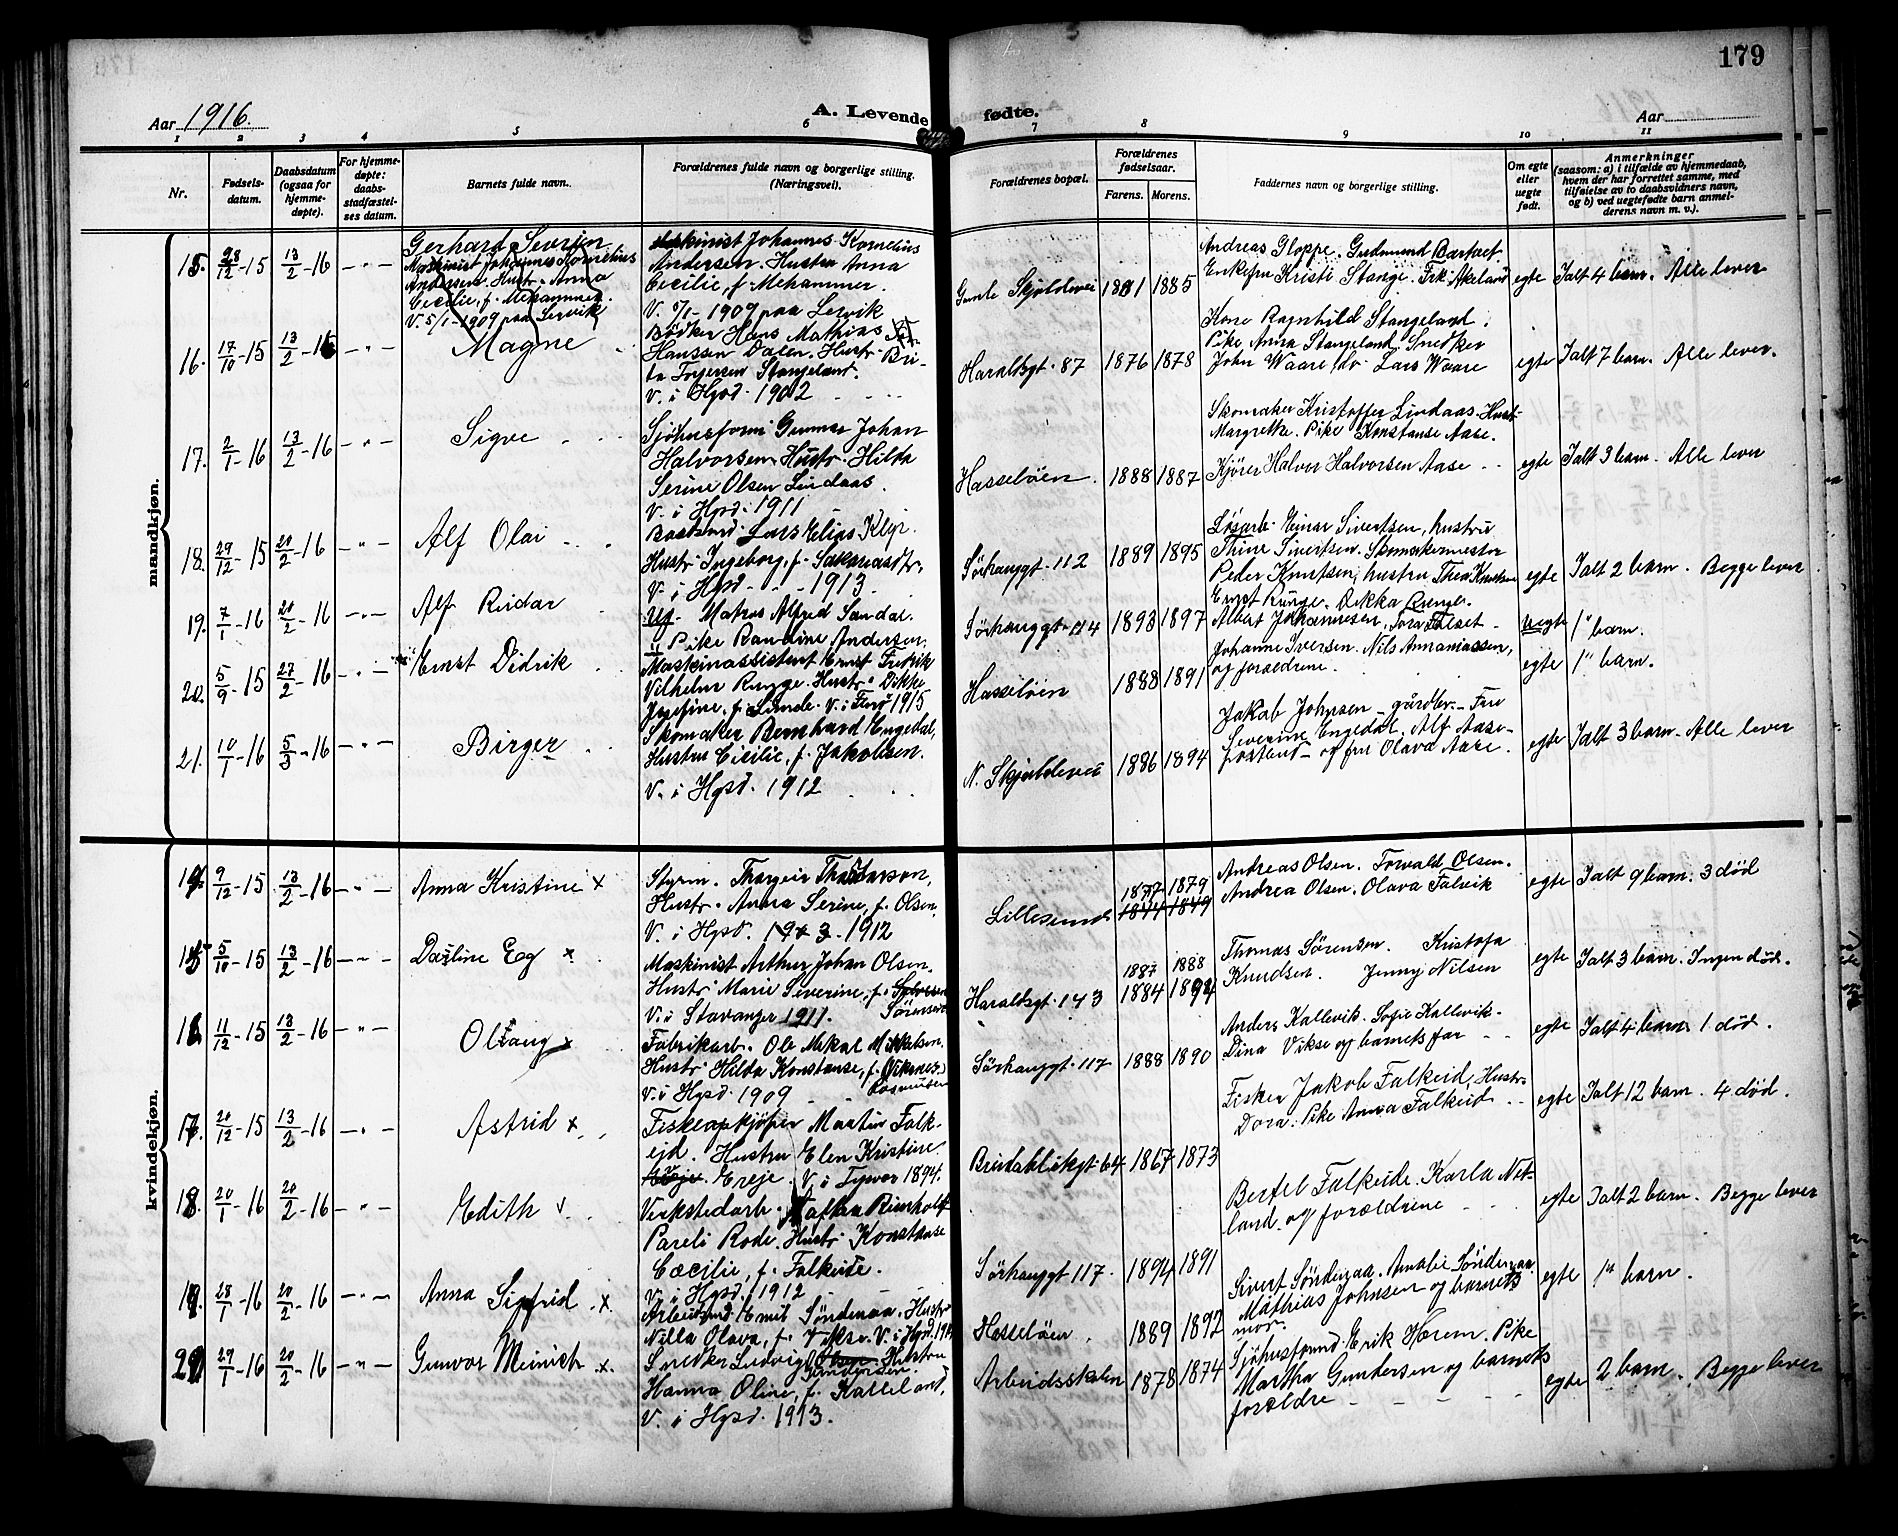 179
Aar 1916.
A. Levende fødte.
Aar
1 2 3 4 5 6 7 8 9 10 11
Nr.
Fødsels-
datum.
Daabsdatum
(ogsaa for
hjemme-
døpte).
For hjemme-
døpte:
daabs-
stadfæstel-
ses datum.
Barnets fulde navn.
Forældrenes fulde navn og borgerlige stilling.
(Næringsvei).
Forældrenes bopæl.
Forældrenes
fødselsaar.
Farens. Morens.
Faddernes navn og borgerlige stilling.
Om egte
eller
uegte
født.
Anmerkninger
(saasom: a) i tilfælde av hjemmedaab,
hvem der har forrettet samme, med
tilføielse av to daabsvidners navn,
og b) ved uegtefødte barn anmel-
derens navn m. v.).
mandkjøn.
15. 28/12-15 13/2-16 —„—
Gerhard Severin
Maskinist Johannes Kornelius
Andersen. Hustr. Anna
Cecilie, f. Mehammer.
V. 5/1-1909 paa Lervik
Maskinist Johannes Kornelius
Andersen. Hustru Anna
Cecilie, f. Mehammer.
V. 5/1-1909 paa Lervik
Gamle Skjoldevei 1881 1885
Andreas Gloppe. Gudmund
Enkefru Kristi Stange. Frk. Akeland
egte Ialt 4 barn. Alle lever
16. 17/10-15 13/2-16 —„— Magne
Bødker Hans Mathias
Hanssen Dalen. Hustr. Bri-
ta Torgersen Stangeland.
V. i Hgsd. 1902
Haraldsgt. 87 1876 1878
Kone Ragnhild Stangeland.
Pike Anna Stangeland. Snedker
John Waare Lars Waare
egte Ialt 7 barn. Alle lever.
17. 2/1-16 13/2-16 —„— Sigve
Sjøhusform. Gunnar Johan
Halvorsen. Hustr. Hilda
Serine Olsen Lindaas.
V. i Hgsd. 1911
Hasseløen. 1888 1887
Skomaker Kristoffer Lindaas. Hustr.
Margrethe. Pike Konstanse Aase.
Kjører Halvor Halvorsen Aase
egte Ialt 3 barn. Alle lever
18. 29/12-15 20/2-16 —„— Alf Olai
Lars Elias
Hustr. Ingeborg, f. Sakariasdtr.
V. i Hgsd. 1913.
Sørhauggt. 112 1889 1895
Løsarb. Einar Sivertsen, hustru
Thine Sivertsen. Skomakermester
Peder Knutsen, hustru Thea Knutsen
egte Ialt 2 barn. Begge lever
19. 7/1-16 20/2-16 —„— Alf Reidar
Ugf. Matros Alfred Sandal.
Pike Randine Andersen.
Sørhauggt. 114 1893 1897
Ernst Runge. Dikka Runge.
Albert Johannesen, Tora
uegte 1ste barn.
20. 5/9-15 27/2-16 —„— Ernst Didrik
Maskinassistent Ernst Fredrik
Vilhelm Runge. Hustr. Dikke
Josefine, f. Lunde. V. i Florø 1915
Hasseløen 1888 1891
Johanne Iversen. Nils Annaniassen,
og forældrene.
egte 1ste barn.
21. 10/1-16 5/3-16 —„— Birger
Skomaker Bernhard Engedal,
Hustru Cicilie, f. Jakobsen.
V. i Hgsd. 1912
N. Skjoldevei 1886 1894
Jakob Johnsen - gårdbr. - Fru
Severine Engedal. Alf Aase-
og fru Olava Aase.
egte Ialt 3 barn. Alle lever
kvindekjøn.
14. 9/12-15 13/2-16 —„— Anna Kristine x
Styrm. Thorgeir
Hustr. Anna Serine, f. Olsen.
V. i Hgsd. 1912
Lillesund 1877 1879
Andreas Olsen. Torvald Olsen.
Andrea Olsen. Olava Falvik
egte Ialt 9 barn. 3 død
15 5/10-15 13/2-16 —„— Dagline Eeg x
Maskinist Arthur Johan Olsen.
Hustr. Marie Severine, f.
Sørensen
V. i Stavanger 1911.
Haraldsgt. 143 1887 1888
1884 1894
Thomas Sørensen. Kristofa
Knudsen. Jenny Nilsen
egte Ialt 3 barn. Ingen død.
16. 11/12-15 13/2-16 —„— Olfaug x
Fabrikarb. Ole Mekal Mikkelsen.
Hustr. Hilda Konstanse, f. Viksnes.
Rasmussen
V. i Hgsd. 1909
Sørhauggt. 117 1888 1890
Anders Kallevik. Sofie Kallevik.
Dina Vikse og barnets far
egte Ialt 4 barn 1 død.
17. 20/12-15 13/2-16 —„— Astrid x
Fiskeopkjøper Martin Falk-
ejd. Hustru Elen Kristine
Ereje. V. i Tysvær 1894.
Breidablikgt. 64 1867 1873
Fisker Jakob Falkeid, Hustr.
Dora. Pike Anna Falkeid
egte Ialt 12 barn. 4 død.
18. 20/1-16 20/2-16 —„— Edith x
Verkstedarb. Nathan Reinholdt
Pareli Rode. Hustr. Konstanse
Cæcilie, f. Falkeide.
V. i Hgsd. 1912
Sørhauggt. 117. 1894 1891
Bertel Falkeide. Karla Net-
land og forældrene
egte Ialt 2 barn. Begge lever
19. 28/1-16 20/2-16 —„— Anna Sigfrid x
Arbeidsmd. Emil Søndenaa. Hustr.
Nilla Olava, f. Vikse. V. i Hgsd.
Hasseløen. 1889 1892
Sivert Søndenaa. Amalie Søndenaa.
Mathias Johnsen og barnets
mor.
egte 1ste barn.
20 29/1-16 20/2-16 —„— Gunvor Meinich x
Snedker Ludvig Olsen Hustru
Gundersen
Hanna Oline, f. Kalleland.
V. i Hgsd. 1913.
Arbeidsskolen 1878 1874
Sjøhusformd. Erik Hærem. Pike
Martha Gundersen og barnets
forældre
egte 2 barn. Begge lever